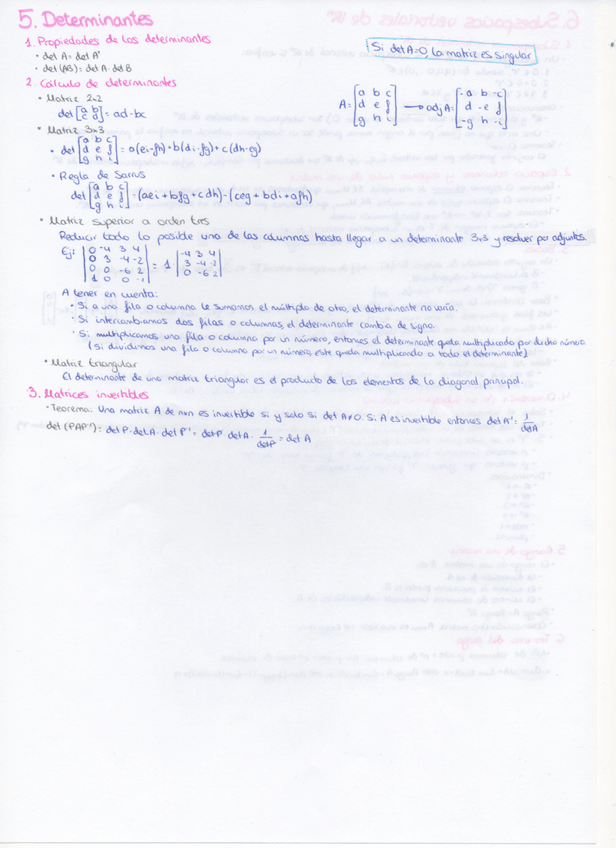 5. Determinantes
1. Propiedades de los determinantes
· det A = det Aᵗ
· det (AB) = det A · det B
Si det A=0, la matriz es singular
2. Cálculo de determinantes
· Matriz 2x2
det [a b; c d] = ad-bc
A = [a b c; d e f; g h i] → adj A = [-a b -c; d -e f; -g h -i]
· Matriz 3x3
· det [a b c; d e f; g h i] = a(ei-fh)+b(di-fg)+c(dh-eg)
· Regla de Sarrus
det [a b c; d e f; g h i] = (aei+bfg+cdh)-(ceg+bdi+afh)
· Matriz superior a orden tres
Reducir todo lo posible una de las columnas hasta llegar a un determinante 3x3 y resolver por adjuntos.
Ej: |0 -4 3 4; 0 3 -4 -2; 0 0 -6 2; 1 0 0 -1| = 1 |-4 3 4; 3 -4 -2; 0 -6 2|
A tener en cuenta:
· Si a una fila o columna le sumamos el múltiplo de otro, el determinante no varía.
· Si intercambiamos dos filas o columnas, el determinante cambia de signo.
· Si multiplicamos una fila o columna por un número, entonces el determinante queda multiplicado por dicho número
(si dividimos una fila o columna por un número, este queda multiplicando a todo el determinante)
· Matriz triangular
El determinante de una matriz triangular es el producto de los elementos de la diagonal principal.
3. Matrices invertibles
· Teorema: Una matriz A de nxn es invertible si y solo si det A≠0. Si A es invertible entonces det A⁻¹ = 1/det A
det (PAP⁻¹) = det P · det A · det P⁻¹ = det P · det A · 1/det P = det A